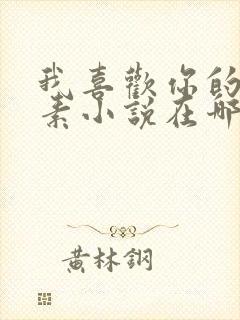 我喜歡你的
素小說在哪
黃林鋼